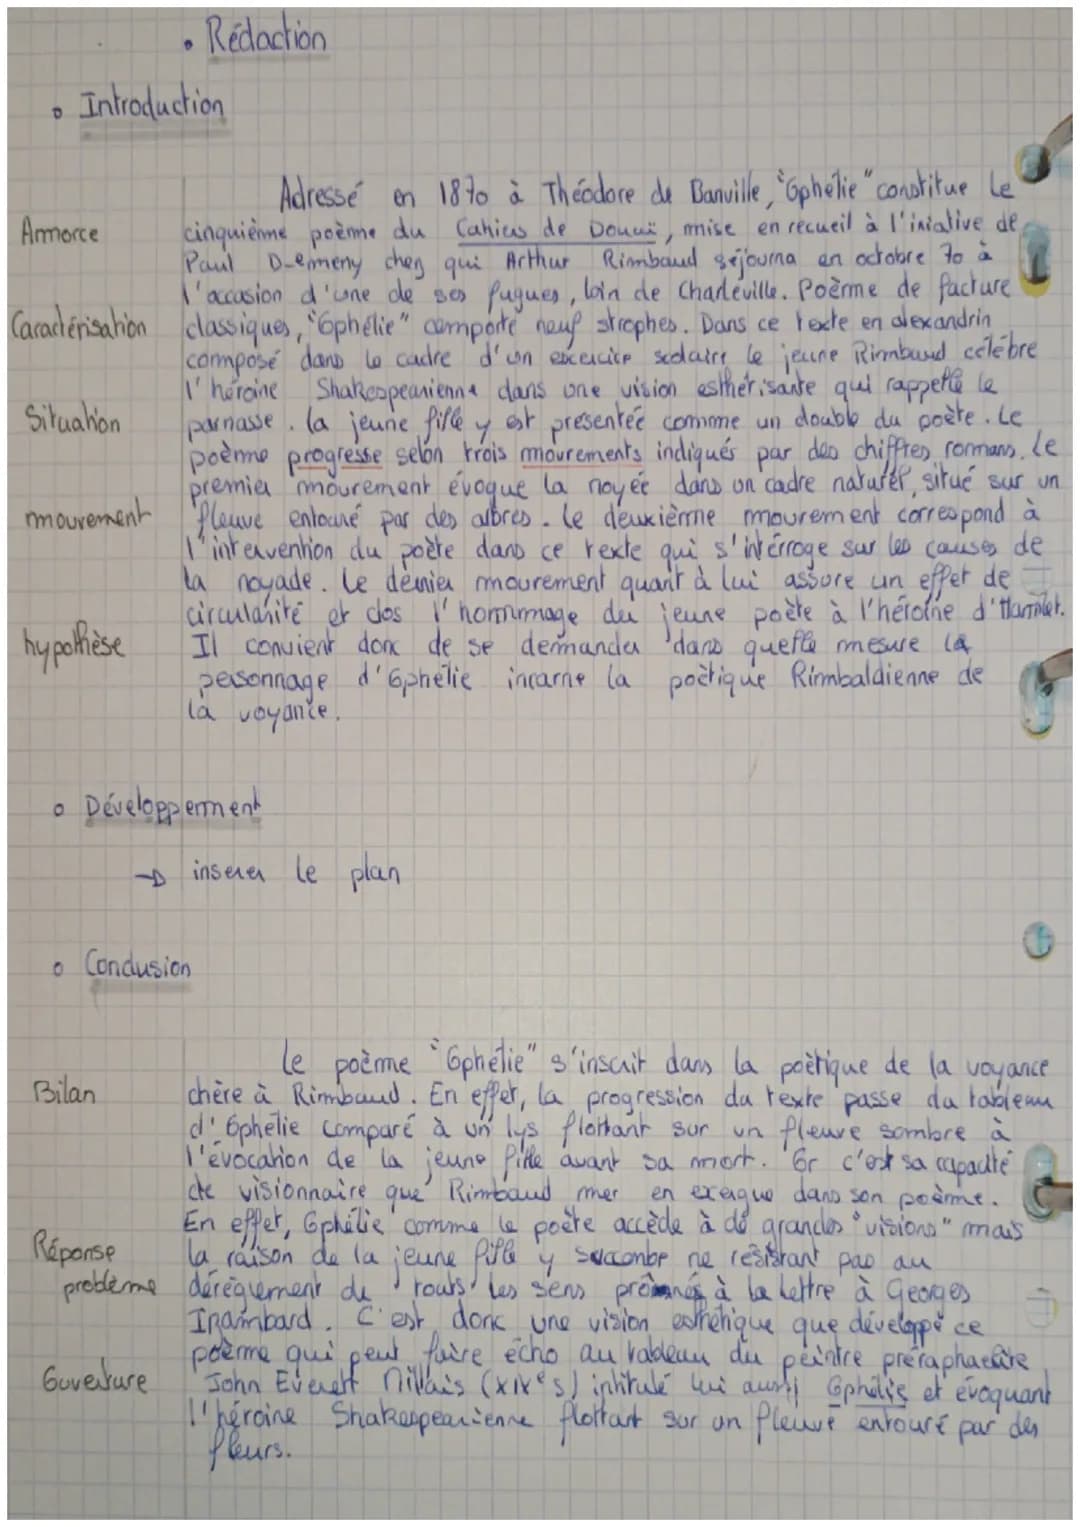 • Rédaction
• Introduction
Adressé en 1870 à Théodore de Banville, "Ophélie" constitue le
Amorce cinquième poème du Cahiers de Douai, mise en recueil à l'iniative de
Paul Demeny chez qui Arthur Rimbaud séjourna en octobre 70 à
l'occasion d'une de ses fugues, loin de Charleville. Poème de facture
Caractérisation classiques, "Ophélie" comporte neuf strophes. Dans ce texte en alexandrin
composé dans le cadre d'un excercice scolaire le jeune Rimbaud célèbre
l'héroine Shakespearienne dans une vision esthétisante qui rappelle le
Situation parnasse. La jeune fille y est présentée comme un double du poète. Le
poème progresse selon trois mouvements indiqués par des chiffres romans. Le
premier mouvement évoque la noyée dans un cadre naturel, situé sur un
mouvement fleuve entouré par des arbres. Le deuxième mouvement correspond à
l'intervention du poète dans ce texte qui s'intérroge sur les causes de
la noyade. Le dernier mouvement quant à lui assure un effet de
circularité et clos l'hommage du jeune poète à l'héroïne d'Hamlet.
hypothèse Il convient donc de se demander dans quelle mesure la
personnage d'Ophélie incarne la poètique Rimbaldienne de
la voyance.
• Développement
→ inserer le plan
• Conclusion
Le poème "Ophélie" s'inscrit dans la poètique de la voyance
Bilan chère à Rimbaud. En effet, la progression du texte passe du tableau
d'Ophélie comparé à un lys flottant sur un fleuve sombre à
l'évocation de la jeune fille avant sa mort. Or c'est sa capacité
de visionnaire que Rimbaud mer en exergue dans son poème.
En effet, Ophélie comme le poète accède à de grandes "visions" mais
Réponse la raison de la jeune fille y succombe ne résistant pas au
problème dérèglement de tours les sens prônés à la lettre à Georges
Izambard. C'est donc une vision esthétique que développe ce
poème qui peut faire écho au tableau du peintre préraphaelite
Ouverture John Everett Millais (XIXe s) intitulé lui aussi Ophélie et évoquant
l'héroine Shakespearienne flottant sur un fleuve entouré par des
fleurs.